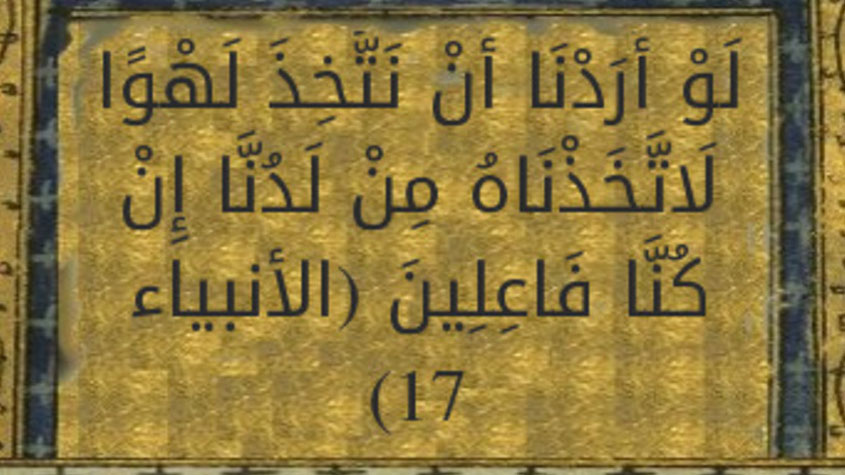 لَوْ أرَدْنَا أنْ نَتَّخِذَ لَهْوًا
لَاتَّخَذْنَاهُ مِنْ لَدُنَّا إِنْ
كُنَّا فَاعِلِينَ (الأنبياء
17)